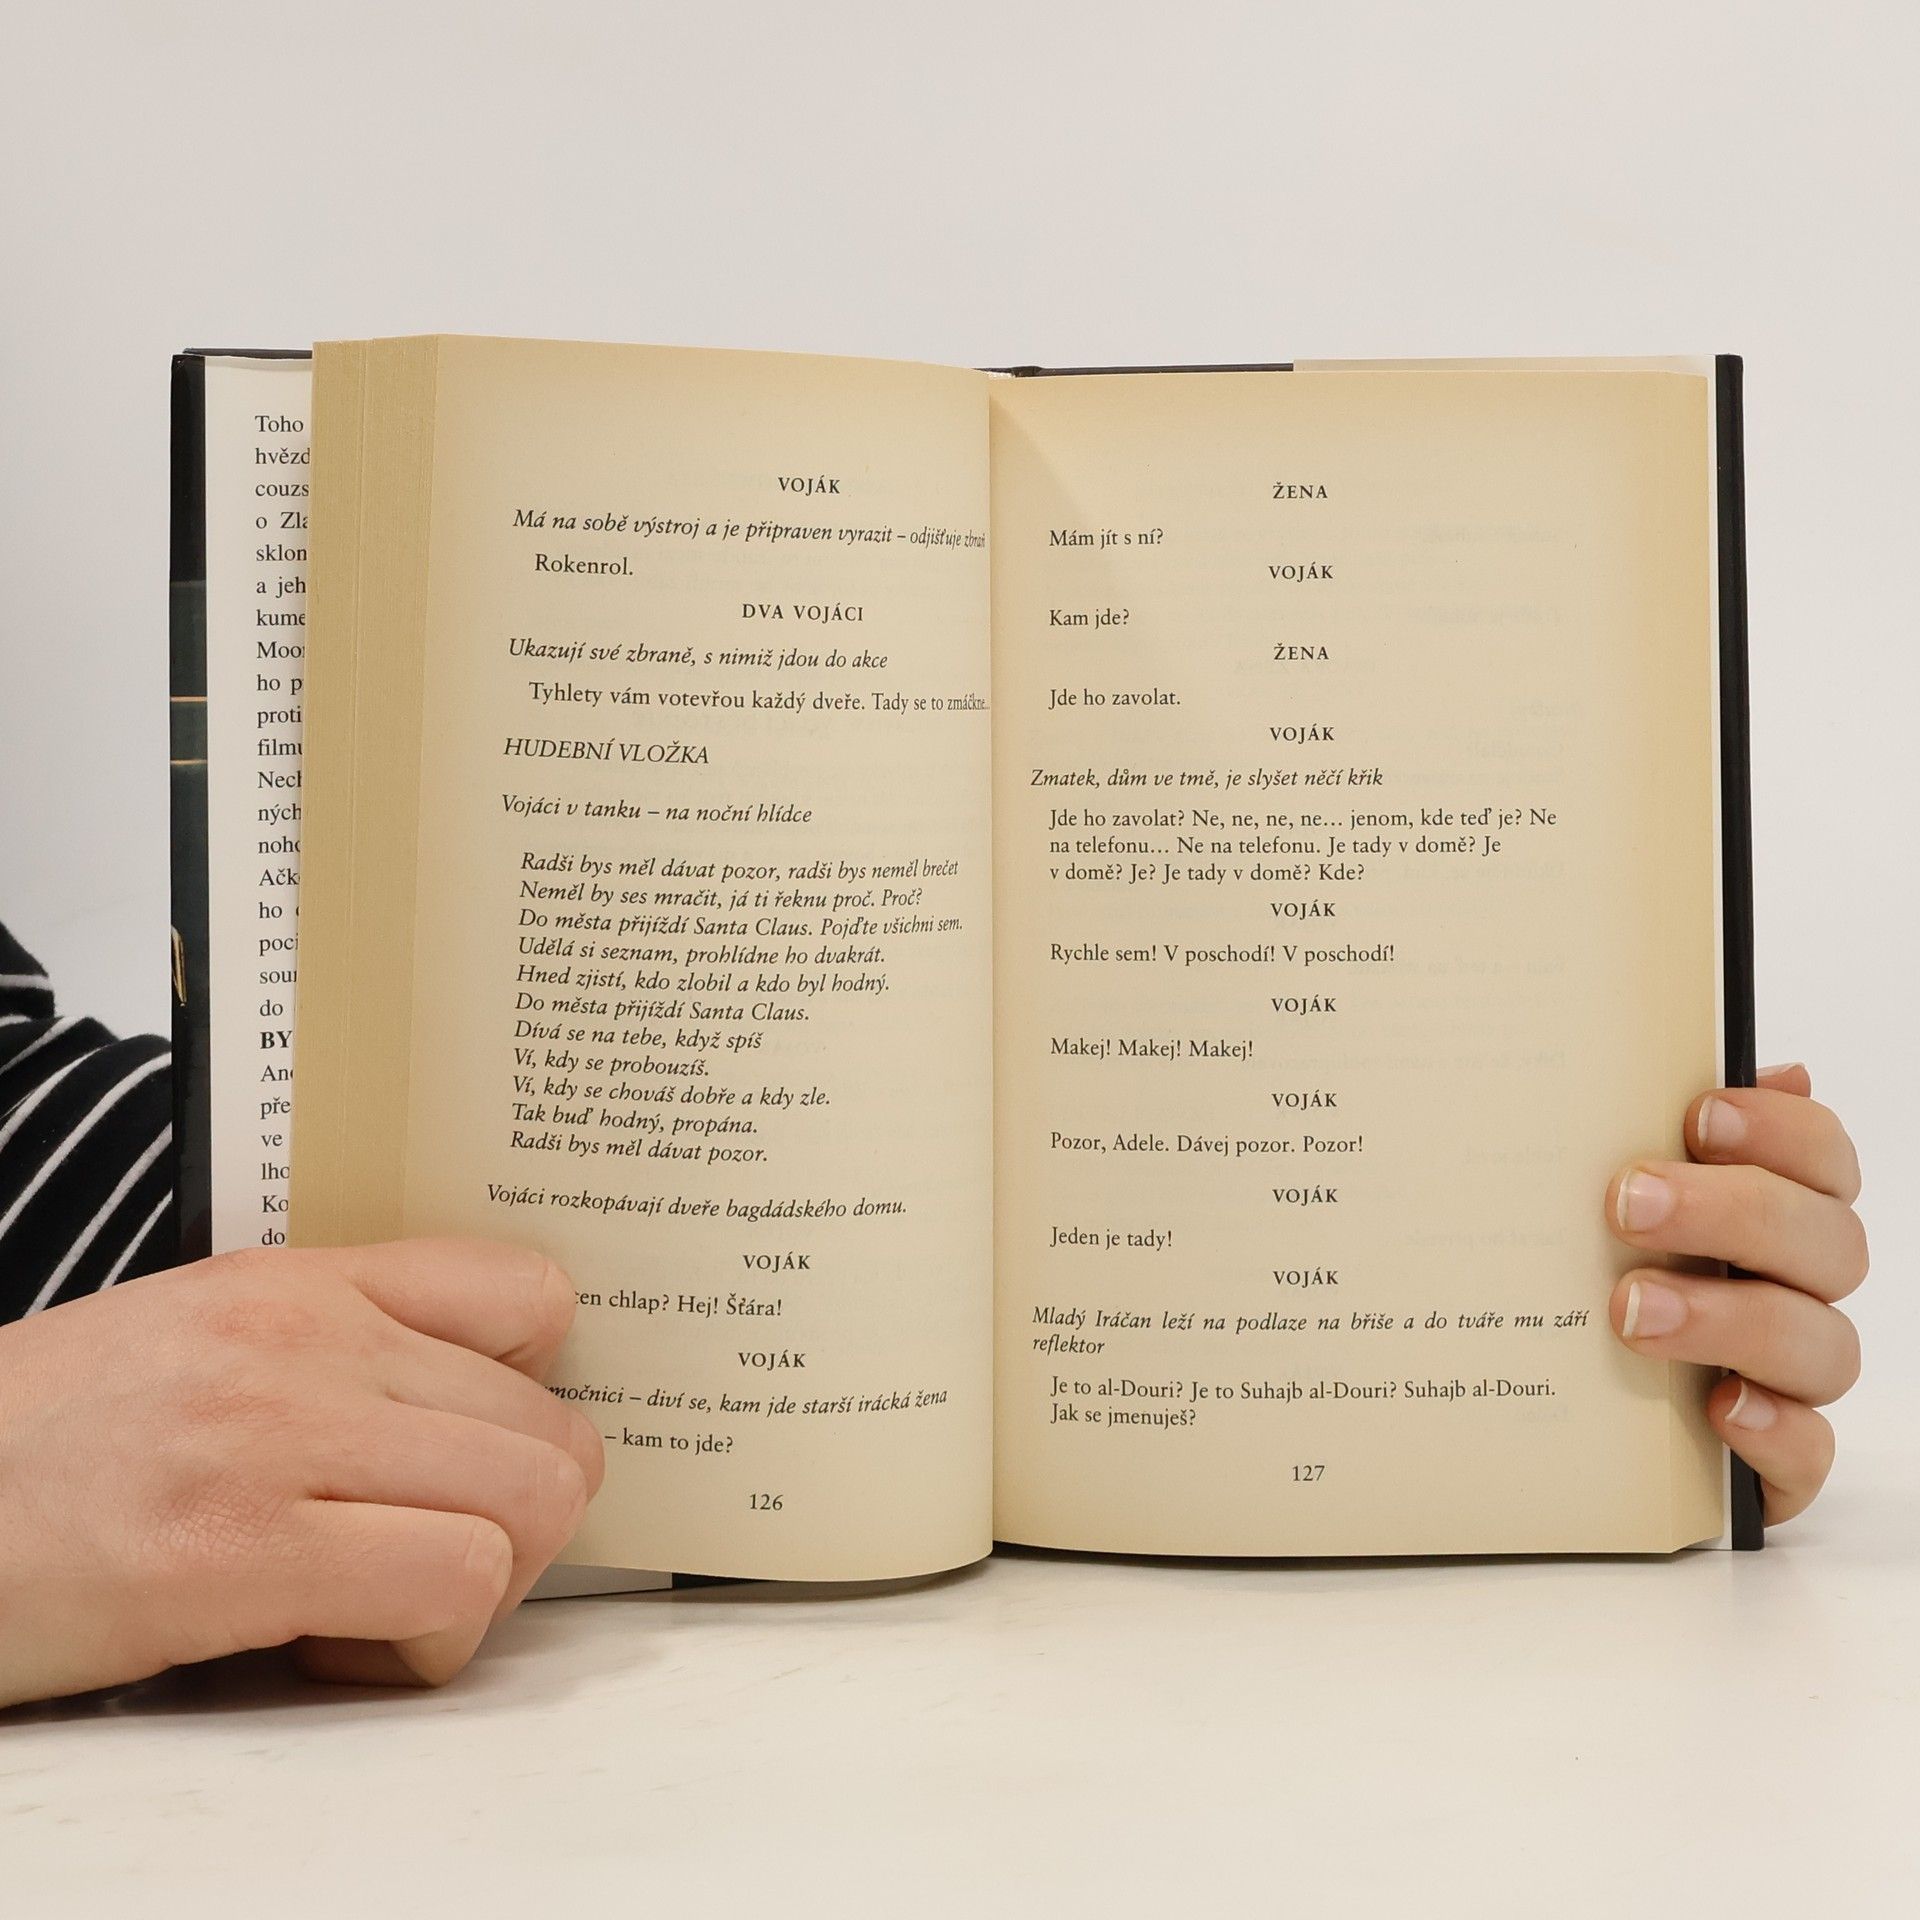 Toho
hvězd
couzs
o Zla
sklon
a jeh
kume
Moor
ho p
proti
filmu
Nech
ných
noho
Ačk
ho
poci
sour
do
BY
And
pře
ve
lho
Ko
do
VOJÁK
Má na sobě výstroj a je připraven vyrazit – odjišťuje zbraň
Rokenrol.
DVA VOJÁCI
Ukazují své zbraně, s nimiž jdou do akce
Tyhlety vám votevřou každý dveře. Tady se to zmáčkne...
HUDEBNÍ VLOŽKA
Vojáci v tanku – na noční hlídce
Radši bys měl dávat pozor, radši bys neměl brečet
Neměl by ses mračit, já ti řeknu proč. Proč?
Do města přijíždí Santa Claus. Pojďte všichni sem.
Udělá si seznam, prohlídne ho dvakrát.
Hned zjistí, kdo zlobil a kdo byl hodný.
Do města přijíždí Santa Claus.
Dívá se na tebe, když spíš
Ví, kdy se probouzíš.
Ví, kdy se chováš dobře a kdy zle.
Tak buď hodný, propána.
Radši bys měl dávat pozor.
Vojáci rozkopávají dveře bagdádského domu.
VOJÁK
ten chlap? Hej! Šťára!
VOJÁK
močnici – diví se, kam jde starší irácká žena
– kam to jde?
126
ŽENA
Mám jít s ní?
VOJÁK
Kam jde?
ŽENA
Jde ho zavolat.
VOJÁK
Zmatek, dům ve tmě, je slyšet něčí křik
Jde ho zavolat? Ne, ne, ne, ne… jenom, kde teď je? Ne
na telefonu… Ne na telefonu. Je tady v domě? Je
v domě? Je? Je tady v domě? Kde?
VOJÁK
Rychle sem! V poschodí! V poschodí!
VOJÁK
Makej! Makej! Makej!
VOJÁK
Pozor, Adele. Dávej pozor. Pozor!
VOJÁK
Jeden je tady!
VOJÁK
Mladý Iráčan leží na podlaze na břiše a do tváře mu září
reflektor
Je to al-Douri? Je to Suhajb al-Douri? Suhajb al-Douri.
Jak se jmenuješ?
127